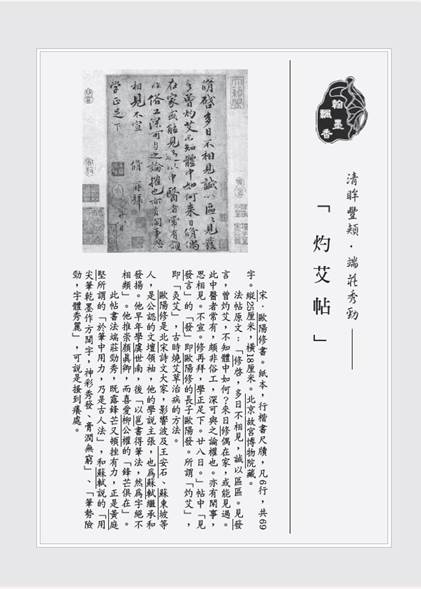 翰墨飄香
清眸豐頰．端莊秀勁——
「灼艾帖」
宋．歐陽修書。紙本，行楷書尺牘，凡6行，共69
字。縱25厘米，橫18厘米。北京故宮博物院藏。
法帖原文：「修啓，多日不相見，誠以區區。見發
言，曾灼艾，不知體中如何？來日修偶在家，或能見過。
此中醫者常有，頗非俗工，深可與之論榷也。亦有閒事，
思相見。不宣。修再拜，學正足下。廿八日。」帖中「見
發言」的「發」即歐陽修的長子歐陽發。所謂「灼艾」，
即「灸艾」，古時燒艾草治病的方法。
歐陽修是北宋詩文大家，影響波及王安石、蘇東坡等
人，是公認的文壇領袖，他的學說主張，也為蘇軾繼承和
發揚。他早年學虞世南，後「以邕書得筆法，然為字絕不
相類」。他推崇顏真卿，而喜愛柳公權的「鋒芒俱在」。
此帖書法端莊勁秀，既露鋒芒又頓挫有力，正是黃庭
堅所謂的「於筆中用力，乃是古人法」，和蘇軾說的「用
尖筆乾墨作方闊字，神彩秀發、膏潤無窮」、「筆勢險
勁，字體秀麗」，可說是搔到癢處。
脩啓多日不相見誠以區區見發
言曾灼艾不知體中如何來日脩偶
在家或能見過此中醫者常有頗
非俗工深可與之論榷也亦有閒事思
相見不宣　脩再拜
學正足下